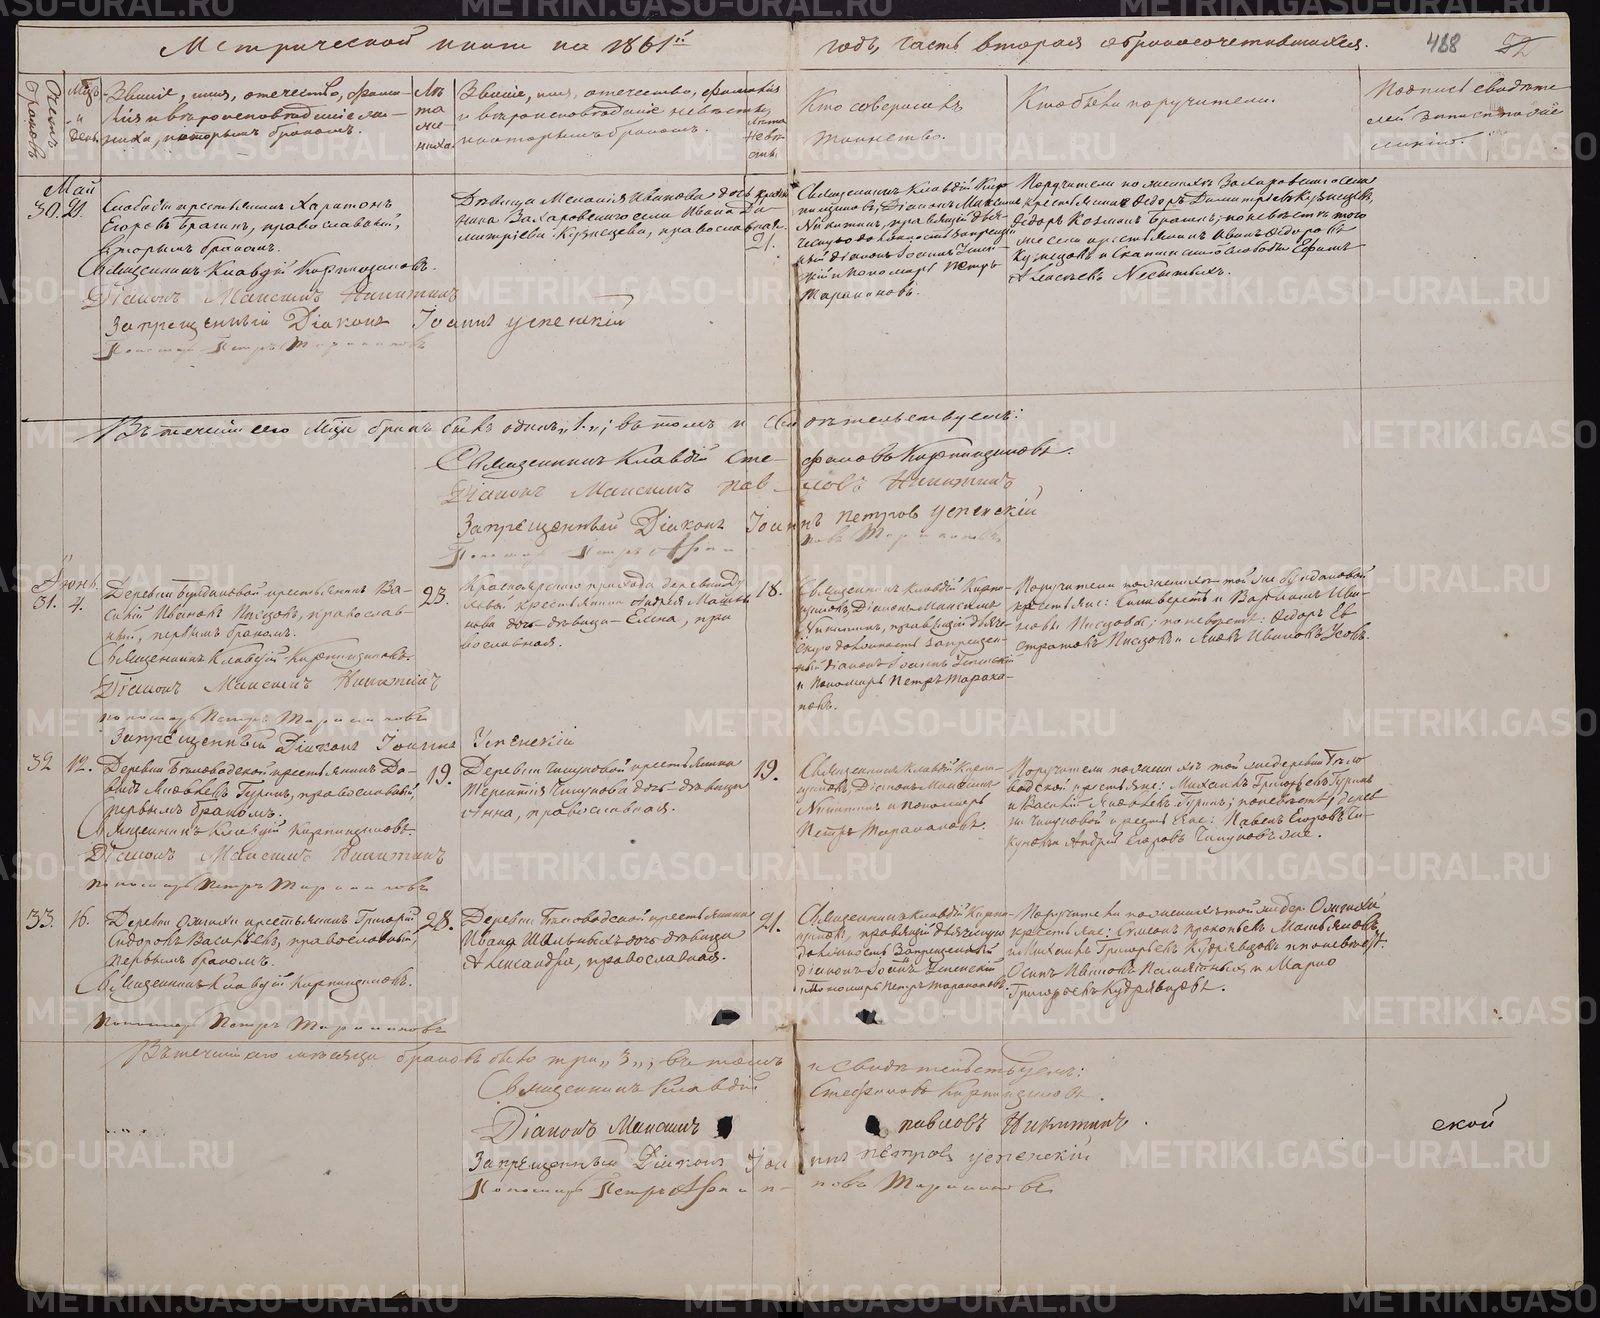 Метрической книги на 1861й годъ, часть вторая о бракосочетавшихся.
488
52
Счетъ браковъ
Мцъ и день
Званіе, имя, отечество, фамилія и вѣроисповѣданіе жениха, которымъ бракомъ.
Лѣта жениха.
Званіе, имя, отечество, фамилія и вѣроисповѣданіе невѣсты, которымъ бракомъ.
Лѣта невѣсты
Кто совершалъ таинство.
Кто были поручители.
Май
30. 21.
Слободы крестьянинъ Харитонъ
Егоровъ Брагинъ, православный,
вторымъ бракомъ.
Священникъ Клавдій Кирпищиковъ.
Діаконъ Максимъ Никитинъ
Запрещенный Діаконъ Іоаннъ Успенскій
Пономарь Петръ Таракановъ
Дѣвица Меланія Иванова дочь крестьянина
Захаровскаго села Ивана Димитріева
Кузнецова, православная.
21.
Священникъ Клавдій Кирпищиковъ,
Діаконъ Максимъ
Никитинъ, правящій дьяческую
должность запрещенный
діаконъ Іоаннъ Успенскій
и пономарь Петръ
Таракановъ.
Поручители по женихѣ Захаровскаго села
крестьяне Ѳедоръ Димитріевъ Кузнецовъ,
Ѳедоръ Козминъ Брагинъ; по невѣстѣ того
же села крестьянинъ Иванъ Ѳедоровъ
Кузнецовъ и
Въ теченіи сего мцѣ бракъ былъ одинъ „1.„; въ томъ и свидѣтельствуемъ:
Священникъ Клавдій Стефановъ Кирпищиковъ.
Діаконъ Максимъ Павловъ Никитинъ
Запрещенный Діаконъ Іоаннъ Петровъ Успенскій
Пономарь Петръ
Іюнь.
31. 4.
Деревни крестьянинъ Василій
Ивановъ Писцовъ, православный,
первымъ бракомъ.
Священникъ Клавдій Кирпищиковъ.
Діаконъ Максимъ Никитинъ
пономарь Петръ Таракановъ
Запрещенный Діаконъ Іоаннъ Успенскій
23.
Красноярскаго прихода деревни
крестьянина Андрея
дочь дѣвица Елена, православная.
18.
Священникъ Клавдій Кирпищиковъ,
Діаконъ Максимъ
Никитинъ, правящій дьяческую
должность запрещенный
діаконъ Іоаннъ Успенскій
и Пономарь Петръ Таракановъ.
Поручители по женихѣ той же
крестьяне: Сильверстъ и Варламъ Ивановы
Писцовы; по невѣстѣ: Ѳедоръ
Писцовъ и Яковъ Ивановъ Усовъ.
32 12.
Деревни Бѣловодской крестьянинъ Давидъ
Яковлевъ Гуринъ, православный,
первымъ бракомъ.
Священникъ Клавдій Кирпищиковъ.
Діаконъ Максимъ Никитинъ
пономарь Петръ Таракановъ
19.
Деревни Чикуновой крестьянина
Терентія Чикунова дочь дѣвица
Анна, православная.
19.
Священникъ Клавдій Кирпищиковъ,
Діаконъ Максимъ
Никитинъ и пономарь
Петръ Таракановъ.
Поручители по женихѣ той же деревни Бѣловодской
крестьяне: Михаилъ Григорьевъ Гуринъ
и Василій Яковлевъ Гуринъ; по невѣстѣ деревни
Чикуновой крестьяне: Павелъ Егоровъ Чикуновъ
и Андрей Егоровъ Чикуновъ же.
33. 16.
Деревни крестьянинъ Григорій
Сидоровъ Васильевъ, православный,
первымъ бракомъ.
Священникъ Клавдій Кирпищиковъ.
Пономарь Петръ Таракановъ
28.
Деревни Бѣловодской крестьянина
Ивана дочь дѣвица
Александра, православная.
21.
Священникъ Клавдій Кирпищиковъ,
правящій дьяческую
должность Запрещенный
діаконъ Іоаннъ Успенскій
и Пономарь Петръ Таракановъ.
Поручители по женихѣ той же дер.
крестьяне: Симеонъ Прокопьевъ
и Михаилъ Григорьевъ Кудрявцовъ и по невѣстѣ.
Осипъ Ивановъ и Марко
Григорьевъ Кудрявцовъ.
Въ теченіи сего мѣсяца браковъ было три „3„; въ томъ и свидѣтельствуемъ:
Священникъ Клавдій Стефановъ Кирпищиковъ.
Діаконъ Максимъ Павловъ Никитинъ.
Запрещенный Діаконъ Іоаннъ Петровъ Успенскій
Пономарь Петръ
ской
METRIKI.GASO-URAL.RU